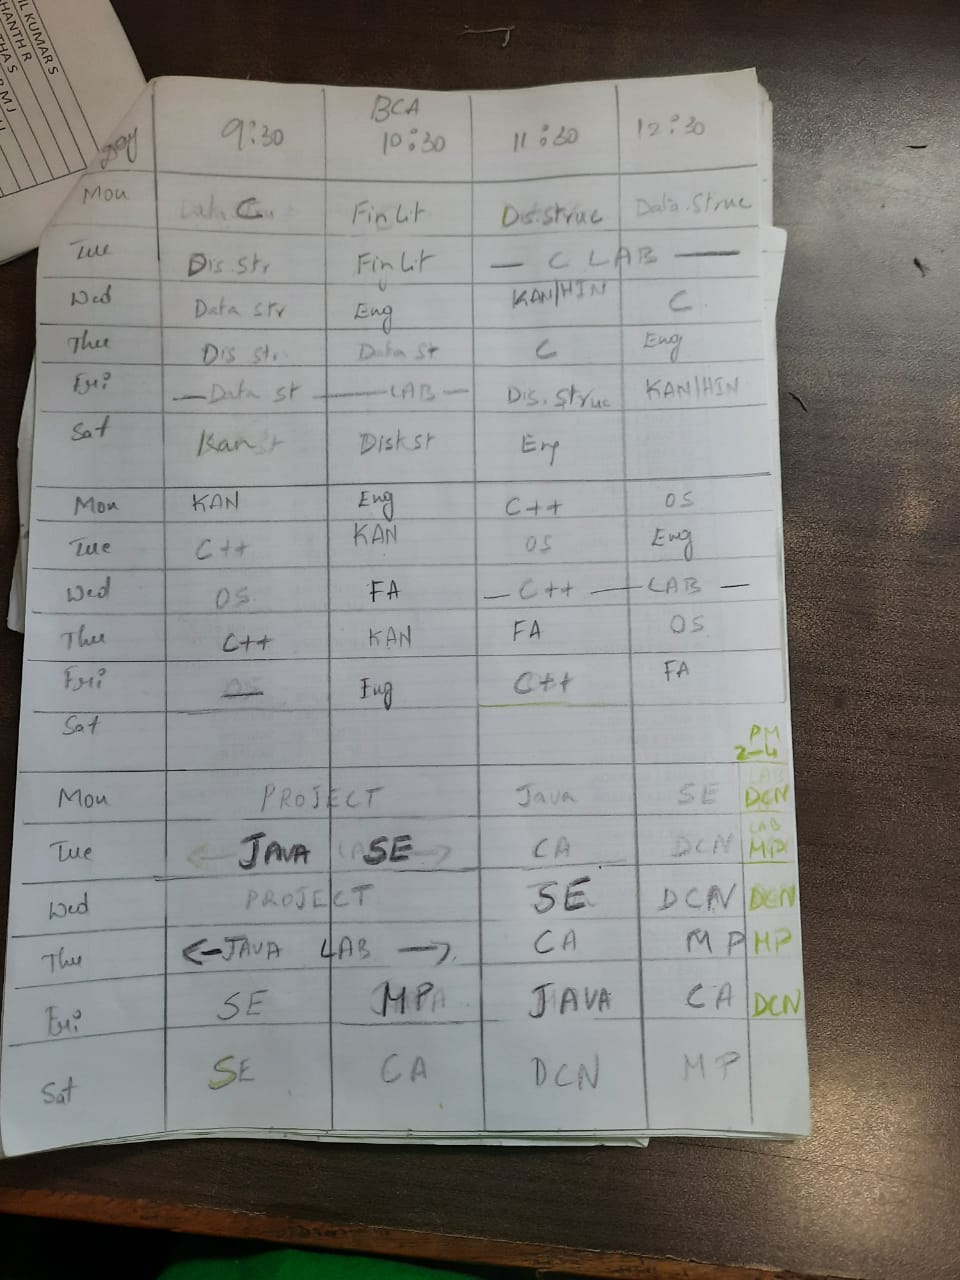 IL KUMAR S
HANTH R
THA S
BCA
Day 9:30 10:30 11:30 12:30
Mon C Fin Lit Dis.Struc Data.Struc
Tue Dis.Str Fin Lit — C LAB —
Wed Data Str Eng KAN/HIN C
Thu Dis St. Data St C Eng
Fri — Data St — LAB — Dis.Struc KAN/HIN
Sat Kan Disk St Eng
Mon KAN Eng C++ OS
Tue C++ KAN OS Eng
Wed OS FA — C++ — LAB —
Thu C++ KAN FA OS
Fri Eng C++ FA
Sat
PM
2-4
Mon PROJECT Java SE LAB DCN
Tue JAVA SE CA DCN LAB MP
Wed PROJECT SE DCN DCN
Thu <- JAVA LAB -> CA MP MP
Fri SE MP JAVA CA DCN
Sat SE CA DCN MP